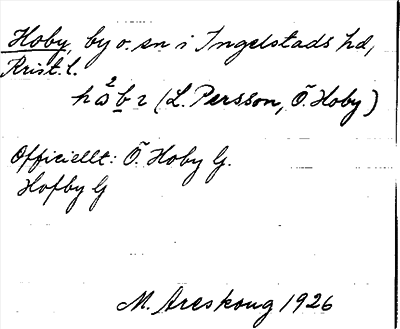 Hoby, by o. sn i Ingelstads hd,
Krist. l.
(L. Persson, Ö. Hoby)
Officiellt: Ö. Hoby G.
Hofby G
M. Areskoug 1926